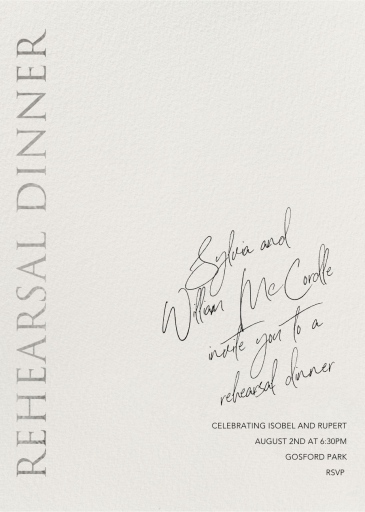 REHEARSAL DINNER
Sylvia and
William McCordle
invite you to a
rehearsal dinner
CELEBRATING ISOBEL AND RUPERT
AUGUST 2ND AT 6:30PM
GOSFORD PARK
RSVP